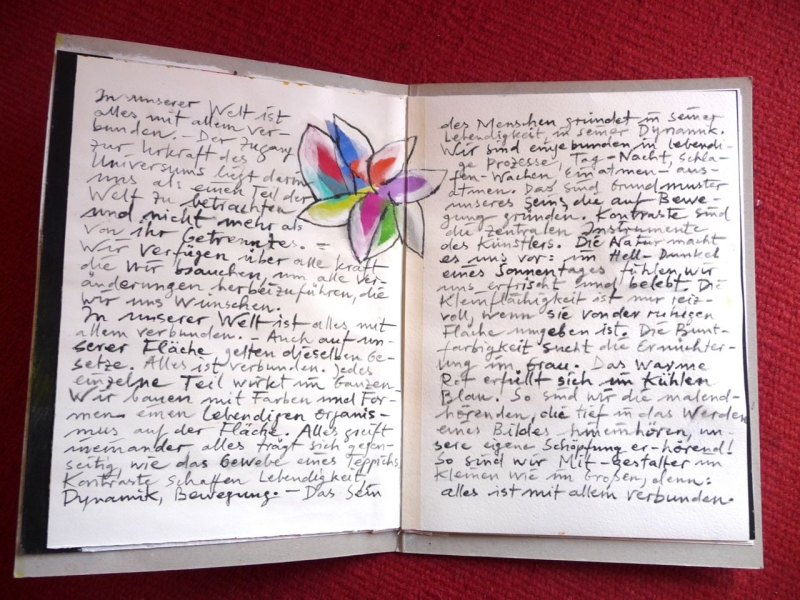 In unserer Welt ist
alles mit allem ver-
bunden. – Der Zugang
zur Urkraft des
Universums liegt darin
uns als einen Teil der
Welt zu betrachten
und nicht mehr als
von ihr Getrenntes. –
Wir verfügen über alle Kraft
die wir brauchen, um alle Ver-
änderungen herbeizuführen, die
wir uns wünschen.
In unserer Welt ist alles mit
allem verbunden. – Auch auf un-
serer Fläche gelten dieselben Ge-
setze. Alles ist verbunden. Jedes
einzelne Teil wirkt im Ganzen –
Wir bauen mit Farben und For-
men einen lebendigen Organis-
mus auf der Fläche. Alles greift
ineinander alles trägt sich gegen-
seitig, wie das Gewebe eines Teppichs
Kontraste schaffen Lebendigkeit,
Dynamik, Bewegung. – Das Sein
des Menschen gründet in seiner
Lebendigkeit, in seiner Dynamik.
Wir sind eingebunden in lebendi-
ge Prozesse, Tag – Nacht, Schla-
fen – Wachen, Ein atmen – aus-
atmen. Das sind Grundmuster
unseres Seins, die auf Bewe-
gung gründen. Kontraste sind
die zentralen Instrumente
des Künstlers. Die Natur macht
es uns vor: im Hell-Dunkel
eines Sonnentages fühlen wir
uns erfrischt und belebt. Die
Kleinflächigkeit ist nur reiz-
voll, wenn sie von der ruhigen
Fläche umgeben ist. Die Bunt-
farbigkeit sucht die Ernüchter-
ung im Grau. Das Warme
Rot erfüllt sich im Kühlen
Blau. So sind wir die malend-
hörenden, die tief in das Werden
eines Bildes hineinhören, un-
sere eigene Schöpfung er-hörend!
So sind wir Mit-Gestalter im
Kleinen wie im Großen, denn:
alles ist mit allem verbunden.